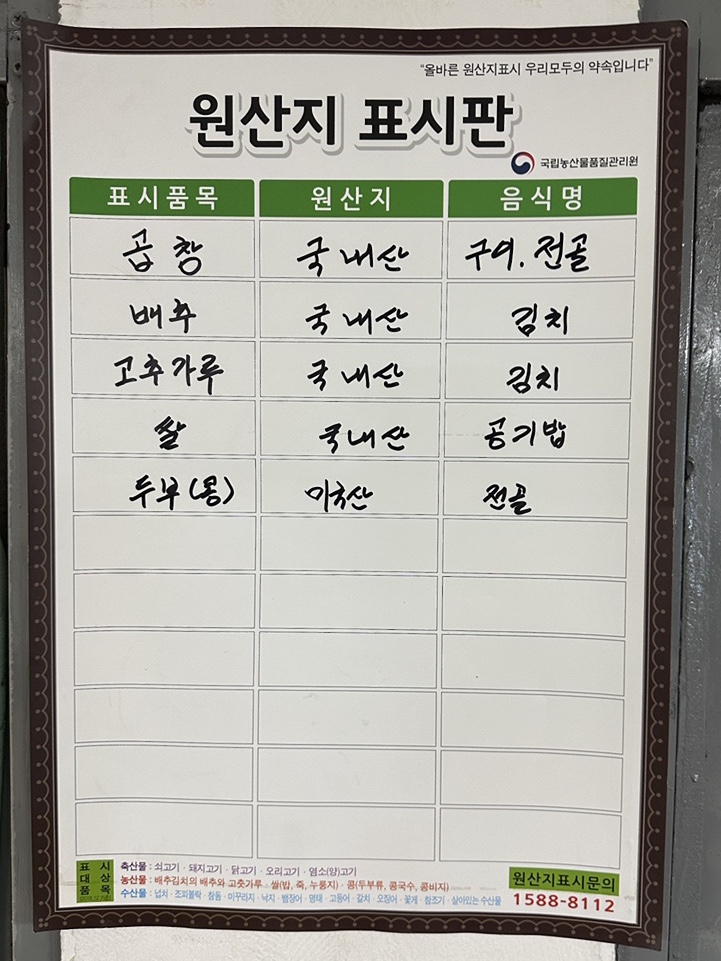 "올바른 원산지표시 우리모두의 약속입니다"
원산지 표시판
국립농산물품질관리원
표시품목 원산지 음식명
곱창 국내산 구이. 전골
배추 국내산 김치
고추가루 국내산 김치
쌀 국내산 공기밥
두부(콩) 미국산 전골
표시 대상 품목
축산물 : 쇠고기 · 돼지고기 · 닭고기 · 오리고기 · 염소(양)고기
농산물 : 배추김치의 배추와 고춧가루 · 쌀(밥, 죽, 누룽지) · 콩(두부류, 콩국수, 콩비지)
수산물 : 넙치 · 조피볼락 · 참돔 · 미꾸라지 · 낙지 · 뱀장어 · 명태 · 고등어 · 갈치 · 오징어 · 꽃게 · 참조기 · 살아있는 수산물
원산지표시문의
1588-8112